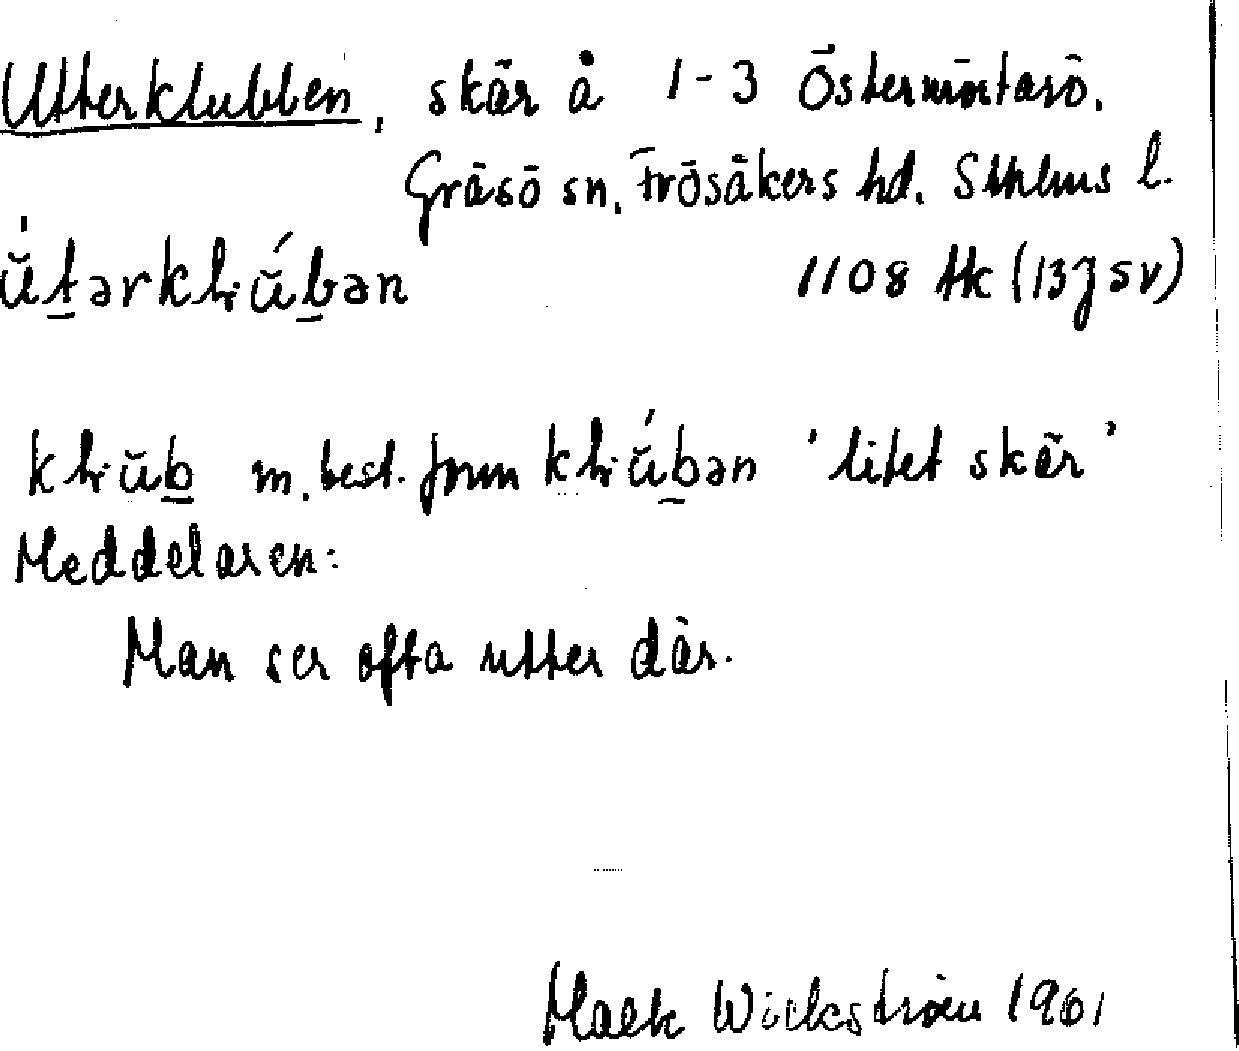 Utterklubben, skär å 1-3 Östermörtarö.
Gräsö sn. Frösåkers hd. Sthlms l.
ŭ́t̲ərklŭ́b̲ən 1108 tk (13g SV)
klŭb̲ m. best. form klŭ́b̲ən 'litet skär'
Meddelaren:
Man ser ofta utter där.
Wickström 1961